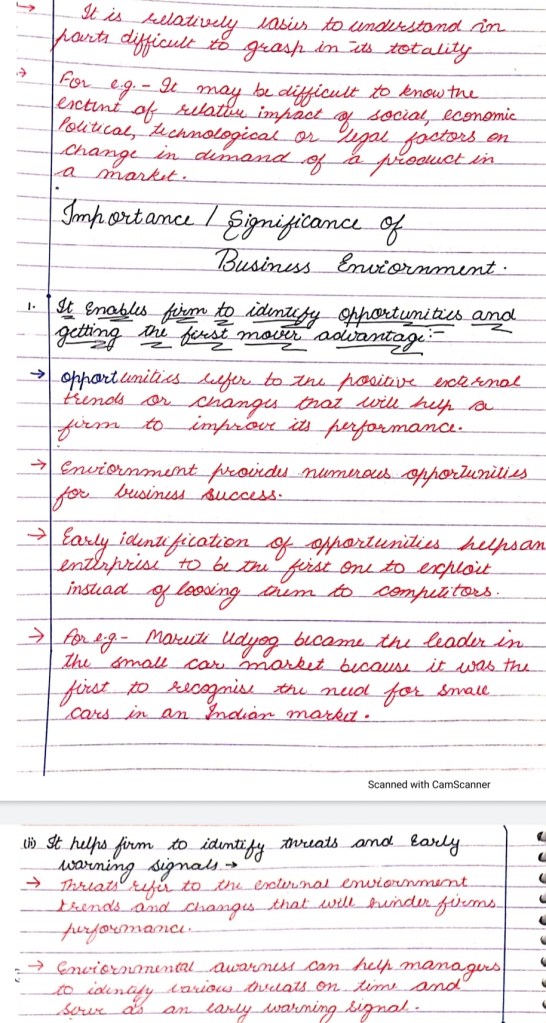 → It is relatively easier to understand in
parts difficult to grasp in its totality
→ For e.g. - It may be difficult to know the
extint of relative impact of social, economic
Political, technological or legal factors on
change in demand of a product in
a market.
Importance / Significance of
Business Enviornment.
1. It enables firm to identify opportunities and
getting the first mover advantage:-
→ opportunities refer to the positive external
trends or changes that will help a
firm to improve its performance.
→ Enviornment provides numerous opportunities
for business success.
→ Early identification of opportunities helps an
enterprise to be the first one to exploit
instead of loosing them to competitors.
→ For e.g - Maruti Udyog became the leader in
the small car market because it was the
first to recognise the need for small
cars in an Indian market.
Scanned with CamScanner
(ii) It helps firm to identify threats and Early
warning signals →
→ Threats refer to the external enviornment
trends and changes that will hinder firms
performance.
→ Enviornmental awarness can help managers
to identify various threats on time and
serve as an early warning signal.